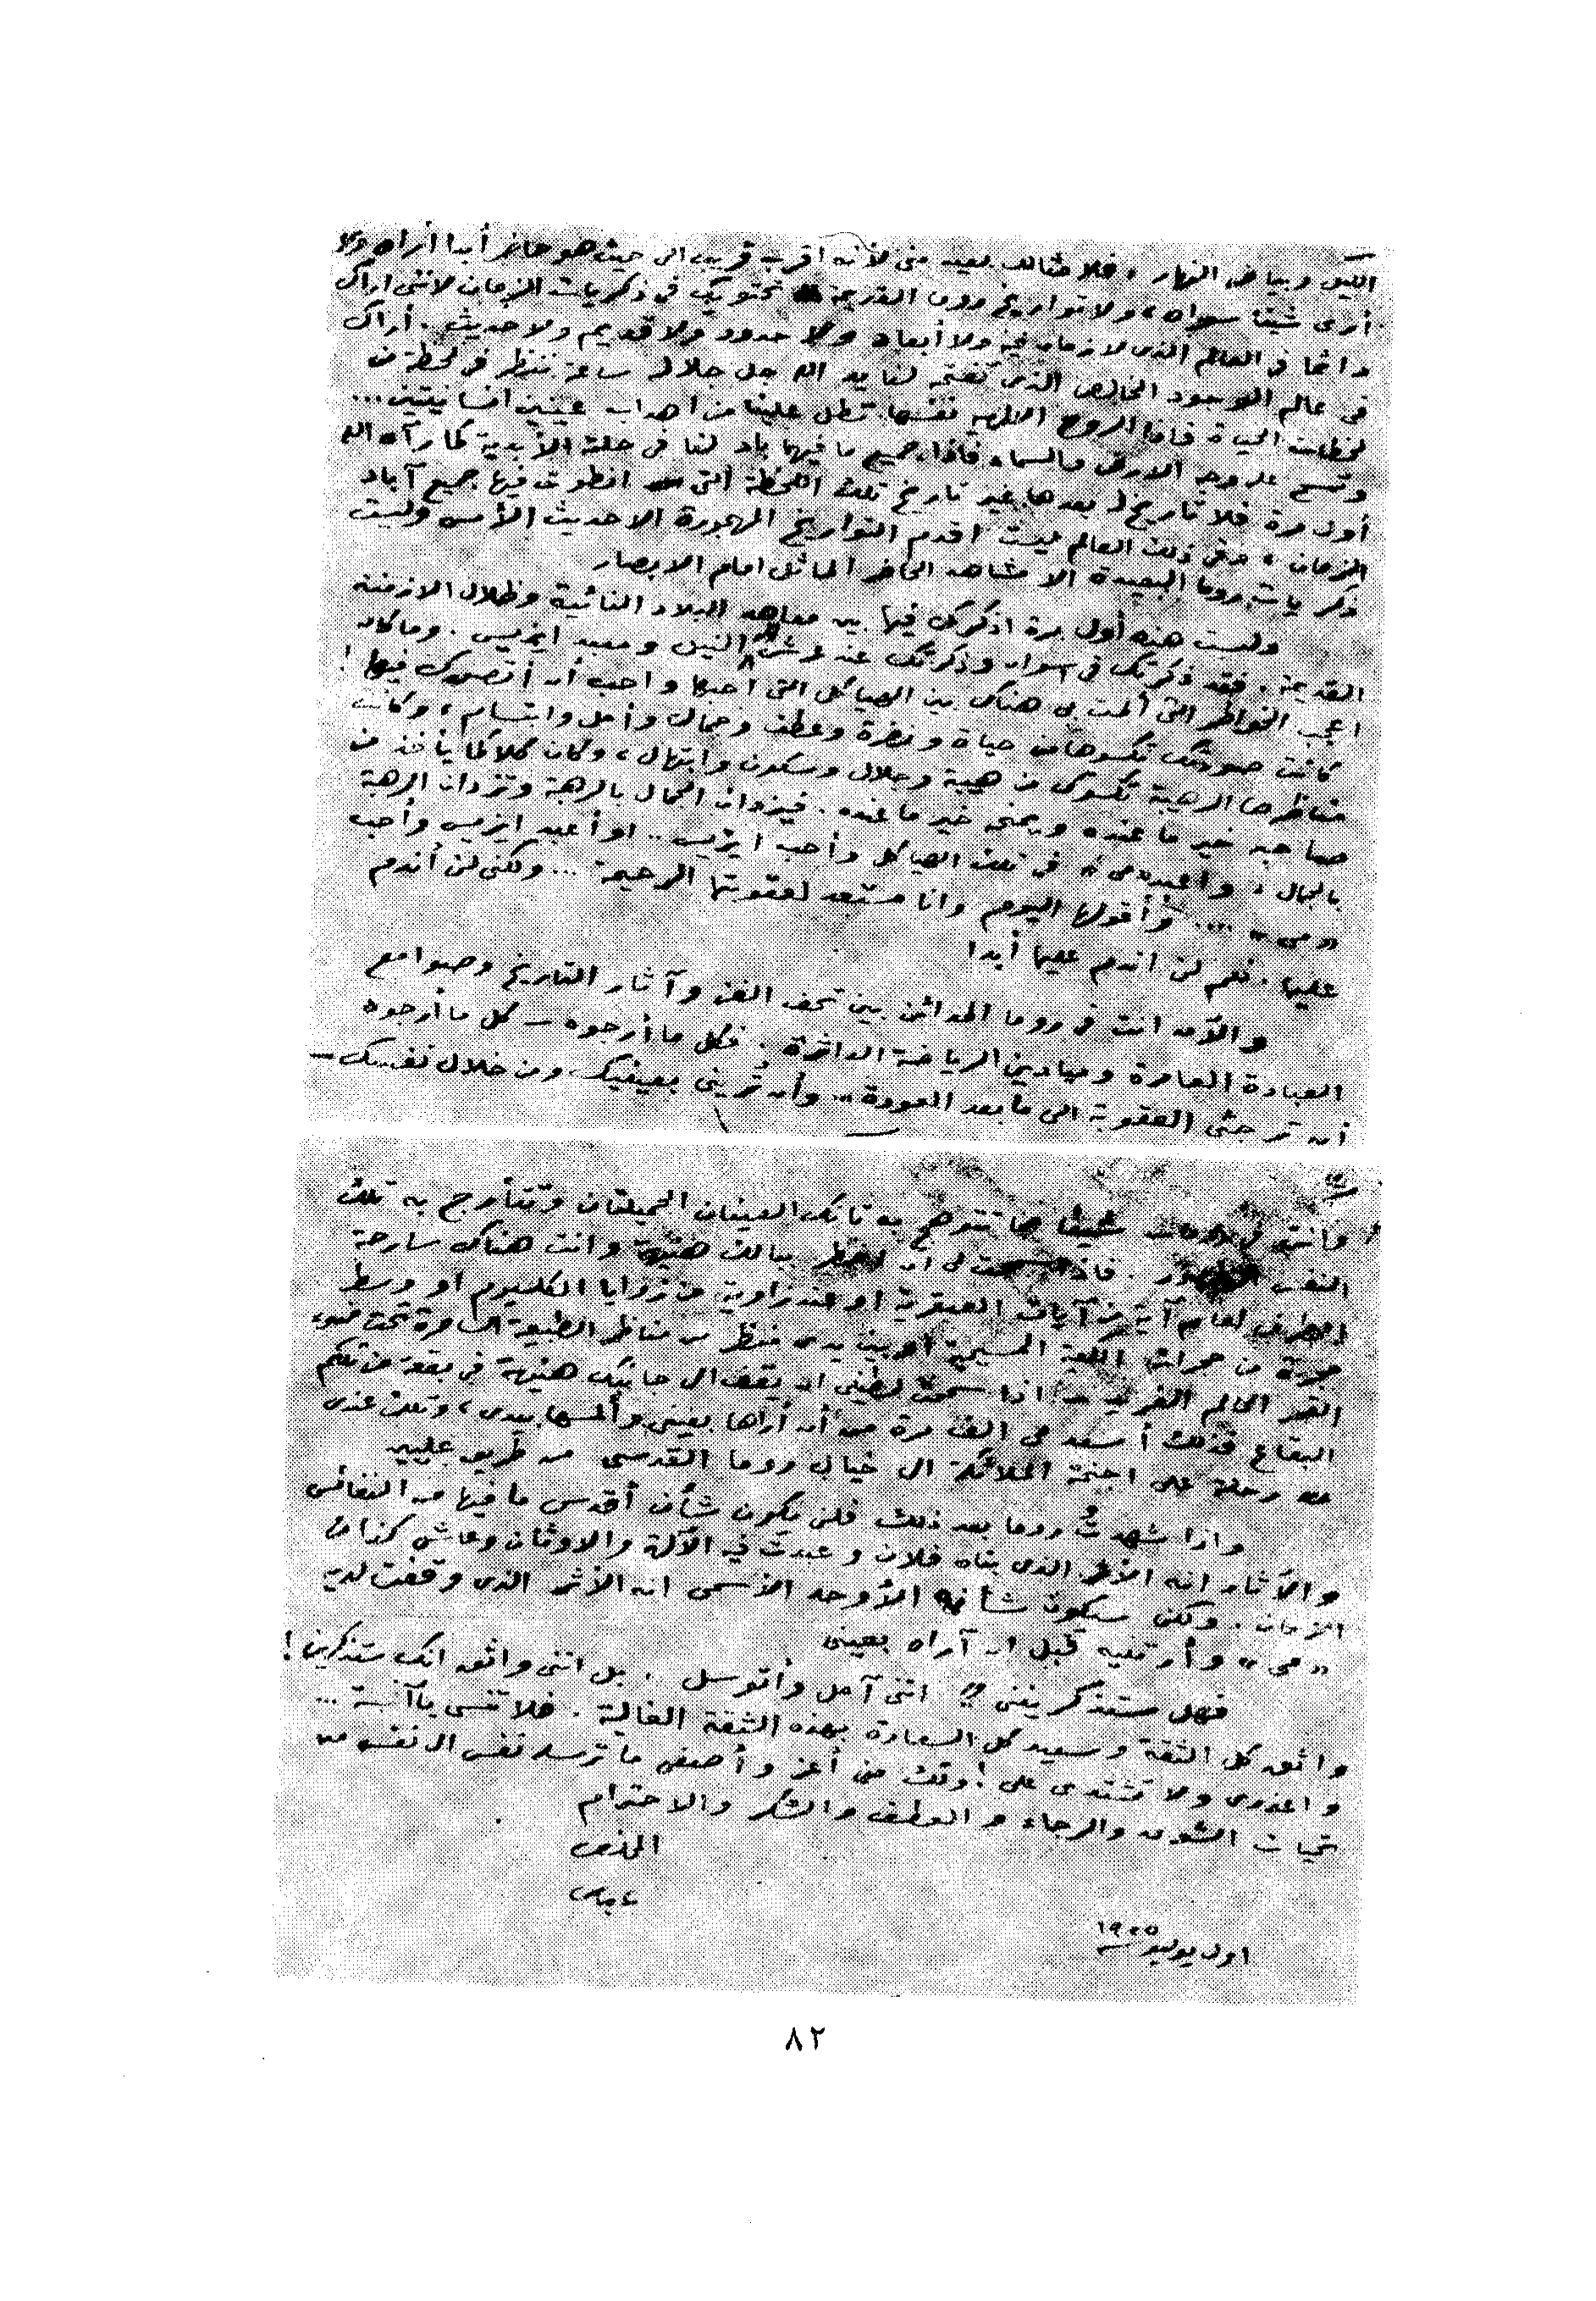 الليل وبياض النهار، فلا مثالك بعيد منى لأنه أقرب قريب الى حيث هو حاضر أبدا أراه ولا
أرى شيئا سواه، ولا تواريخ روما القديمة تحتويك فى ذكريات الزمان لاننى اراك
دائما فى العالم الذى لا زمان فيه ولا أبعاد ولا حدود ولا قديم ولا حديث. أراك
فى عالم الوجود الخالص الذى تفتحه لنا يد الله جل جلاله ساعة ننظر فى لحظة من
لحظات الحياة فاذا الروح الالهى نفسها تطل علينا من اهداب عينين انسانيتين...
وتمسح على وجه الارض والسماء فاذا جميع ما فيهما باد لنا فى حلة الأبدية كما رآه الله
أول مرة فلا تاريخ له بعدها غير تاريخ تلك اللحظة التى انطوت فيها جميع آباد
الزمان، وفى ذلك العالم ليست اقدم التواريخ المهجورة الا حديث الأمس وليست
ذكريات روما البعيدة الا مشاهد الحاضر الماثل امام الابصار
وليست هذه أول مرة اذكرك فيها بين معاهد البلاد النائية وظلال الازمنة
القديمة. فقد ذكرتك فى اسوان وذكرتك عند عرش النيل ومعبد ايزيس. وما كان
اعجب الخواطر التى ألمت بى هناك بين الهياكل التى احبها واحب أن أتصورك فيها!
كانت صورتك تكسوها من حياة ونضرة وعطف وجمال وأمل وابتسام، وكانت
مناظرها الرهيبة تكسوك من هيبة وجلال وسكون وابتهال، وكان كلاكما يأخذ من
صاحبه خير ما عنده ويمنحه خير ما عنده. فيزدان الجمال بالرهبة وتزدان الرهبة
بالجمال، واعبد «مى» فى تلك الهياكل وأحب ايزيس.. او أعبد ايزيس وأحب
«مى» .... وأقولها اليوم وانا مستعد لعقوبتها الرحيمة... ولكنى لن أندم
عليها. نعم لن اندم عليها أبدا
والآن انت فى روما المدائن بين تحف الفن وآثار التاريخ وصوامع
العبادة العامرة وميادين الرياضة الداثرة. فكل ما أرجوه – كل ما أرجوه
أن ترجئى العقوبة الى ما بعد العودة.. وأن ترينى بعينيك ومن خلال نفسك –
وانت شيئا مما تتوهج به تانك العينان الجميلتان وتتأرج به تلك
النفس. فاذا سمحت لى ان اخطر ببالك هنيهة وانت هناك سارحة
الطرف أمام آية من آيات العبقرية او عند زاوية من زوايا الكلسيوم او وسط
حجرة من حجرات الكعبة المسيحية او بين يدى منظر من مناظر الطبيعة الساحرة تحت ضوء
القمر الحالم الغريب – اذا سمحت لطيفى ان يقف الى جانبك هنيهة فى بقعة من تلكم
البقاع فذلك أسعد لى الف مرة من أن أراها بعينى وألمسها بيدى، وتلك عندى
هى رحلة على اجنحة الملائكة الى خيال روما القدسى من طريق عليين
واذا شهدتُ روما بعد ذلك فلن يكون شأن أقدس ما فيها من النفائس
والآثار انه الأثر الذى بناه فلان وعبدت فيه الآلهة والاوثان وعاش كذا من
الزمان. ولكن سيكون شأنه الأوحد الأسمى انه الأثر الذى وقفت لديه
«مى» وأرتنيه قبل ان أراه بعينى
فهل ستذكريننى؟ اننى آمل وأتوسل. بل اننى واثق انك ستذكرين!
واثق كل الثقة وسعيد كل السعادة بهذه الثقة الغالية. فلا تنسى يا آنسة...
واعذرى ولا تشتدى على! ولك منى أعز وأصفى ما ترسله نفس الى نفس من
تحيات الشوق والرجاء والعطف والشكر والاحترام
المخلص
عباس
اول يوليو ١٩٢٥
٨٢